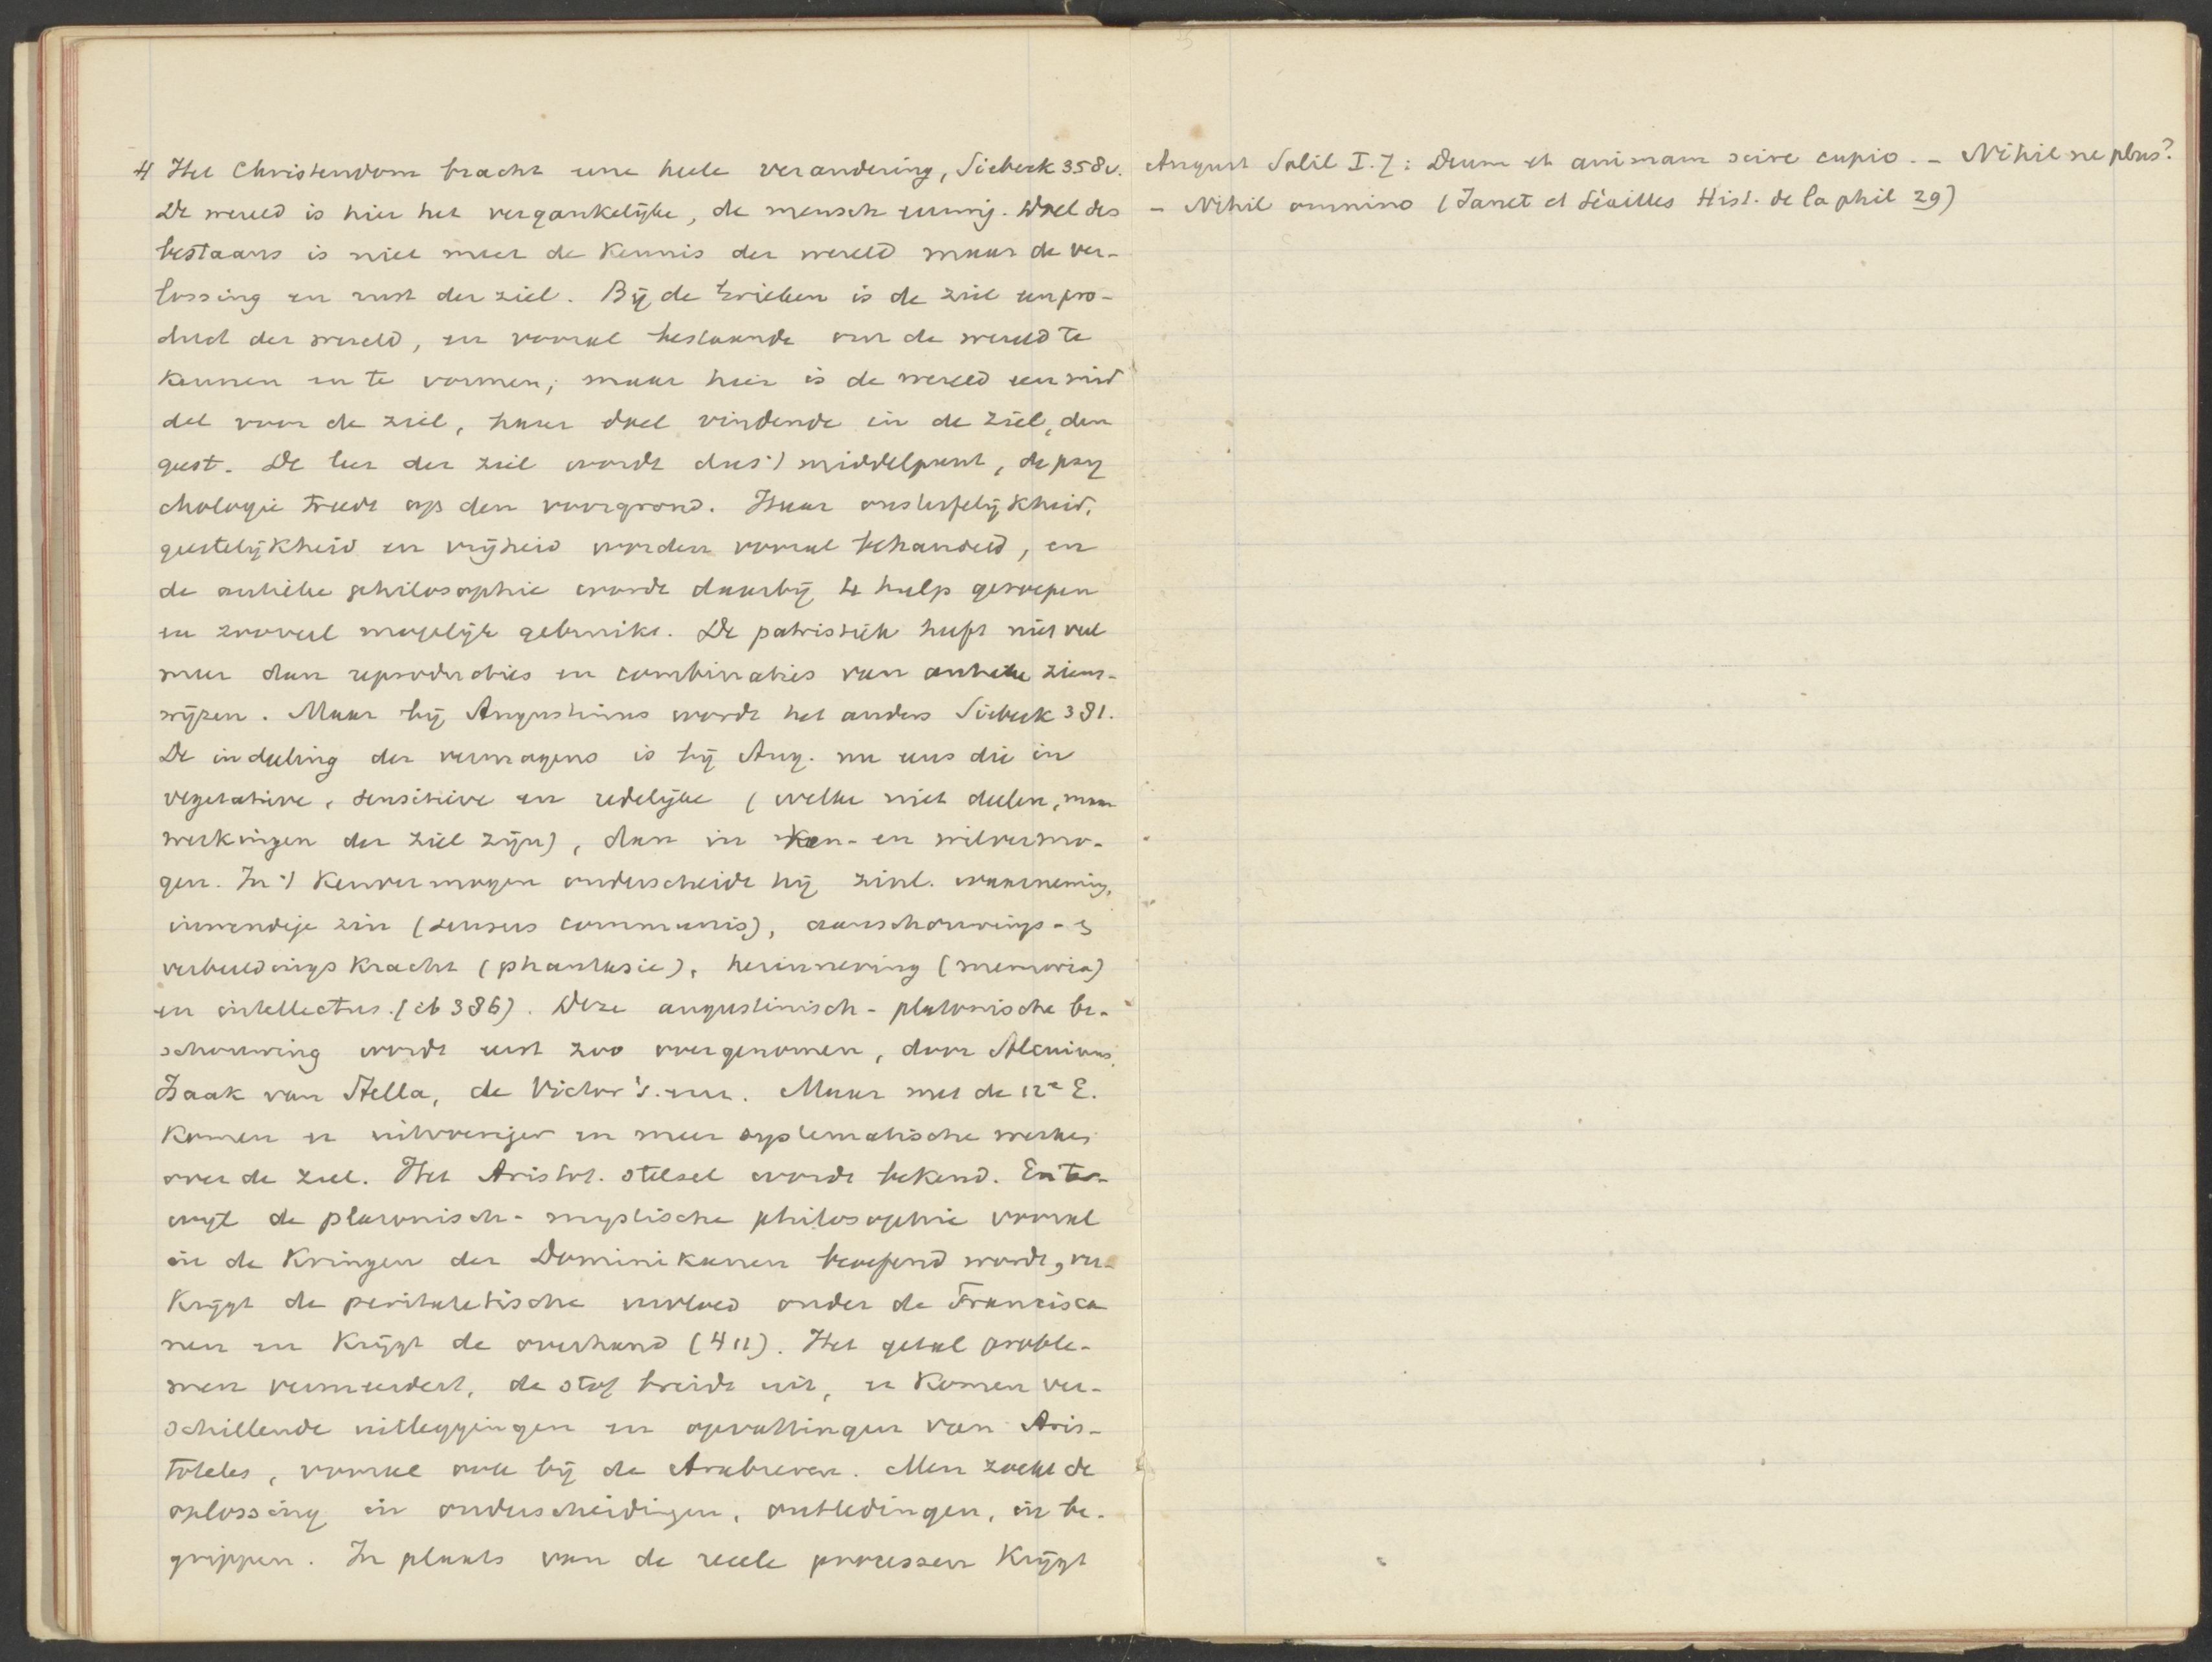 4 Het Christendom bracht eene heele verandering, Siebeck 358v.
De wereld is hier het vergankelijke, de mensch eeuwig. Doel des
bestaans is niet meer de kennis der wereld maar de ver-
lossing en rust der ziel. Bij de Grieken is de ziel een pro-
duct der wereld, en vooral bestaande om de wereld te
kennen en te vormen; maar hier is de wereld een mid
del voor de ziel, haar doel vindende in de ziel, den
geest. De leer der ziel wordt dus 't middelpunt, de psy
chologie treedt op den voorgrond. Haar onsterfelijkheid,
geestelijkheid en vrijheid worden vooral behandeld, en
de antieke philosophie wordt daarbij te hulp geroepen
en zooveel mogelijk gebruikt. De patristiek heeft niet veel
meer dan reproducties en combinaties van antieke ziens-
wijzen. Maar bij Augustinus wordt het anders Siebeck 381.
De indeeling der vermogens is bij Aug. nu eens die in
vegetatieve, sensitieve en redelijke (welke niet deelen, maar
werkingen der ziel zijn), dan in ken- en wilvermo-
gen. In 't kenvermogen onderscheidt hij zinl. waarneming,
inwendige zin (sensus communis), aanschouwings- en
verbeeldingskracht (phantasie), herinnering (memoria)
en intellectus. (ib 386). Deze augustinisch-platonische be-
schouwing wordt eerst zoo overgenomen, door Alcuinus,
Izaak van Stella, de Victor's enz. Maar met de 12e E.
komen er uitvoeriger en meer systematische werken
over de ziel. Het Aristot. stelsel wordt bekend. En ter-
wijl de platonisch-mystische philosophie vooral
in de kringen der Dominikanen beoefend wordt, ver-
krijgt de peripatetische invloed onder de Francisca
nen en krijgt de overhand (411). Het getal proble-
men vermeerdert, de stof breidt uit, er komen ver-
schillende uitleggingen en opvattingen van Aris-
toteles, vooral ook bij de Arabieren. Men zoekt de
oplossing in onderscheidingen, ontledingen, in be-
grippen. In plaats van de reele processen krijgt
August Solil I.7: Deum et animam scire cupio. - Nihil ne plus?
- Nihil omnino (Janet et Séailles Hist. de la phil 29)